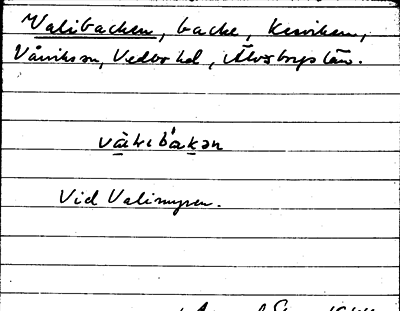 Valibacken, backe, Kesviken,
Vårviks sn, Vedbo hd, Älvsborgs län.
vàlɩbákən
Vid Valimyren.